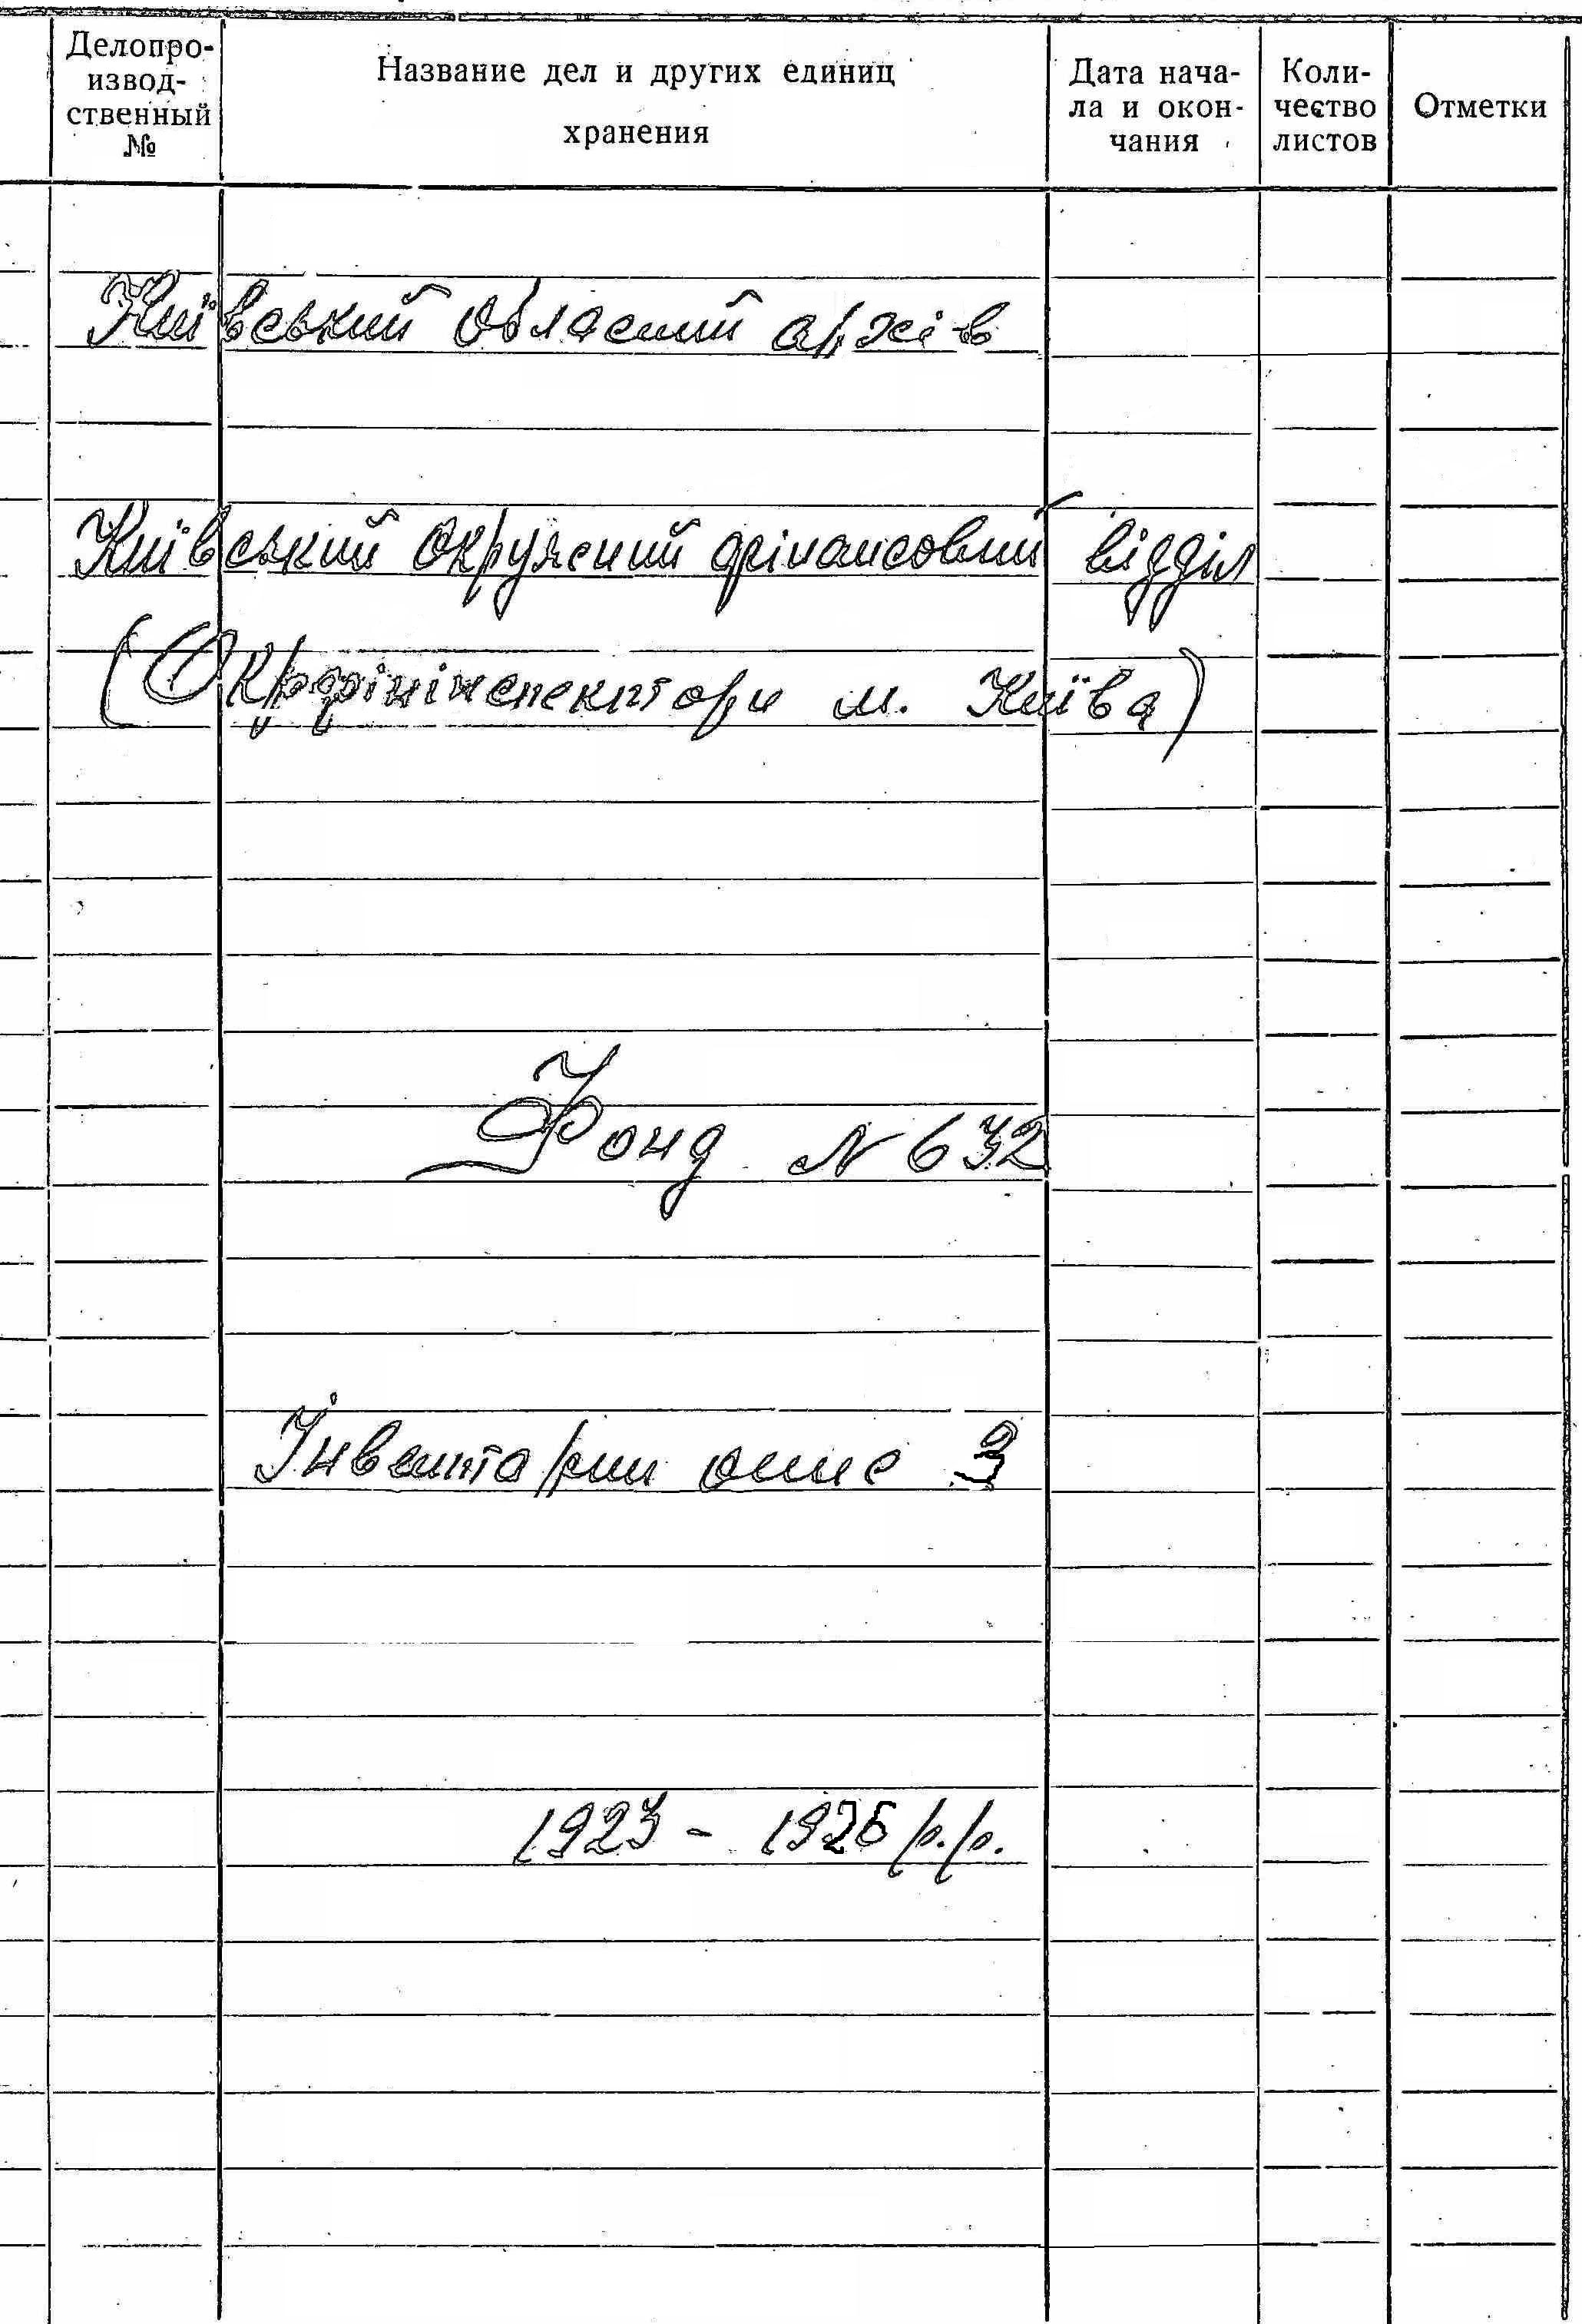 Делопро-
извод-
ственный
№
Название дел и других единиц
хранения
Дата нача-
ла и окон-
чания
Коли-
чество
листов
Отметки
Київський обласний архів
Київський окружний фінансовий відділ
(Окрфінінспектори м. Київа)
Фонд № 632
Інвентарний опис 3
1923 - 1926 р.р.